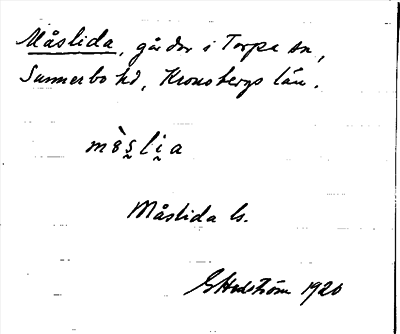 Måslida, gårdar i Torpa sn,
Sunnerbo hd, Kronobergs län.
Måslida ls.
GHedström 1920